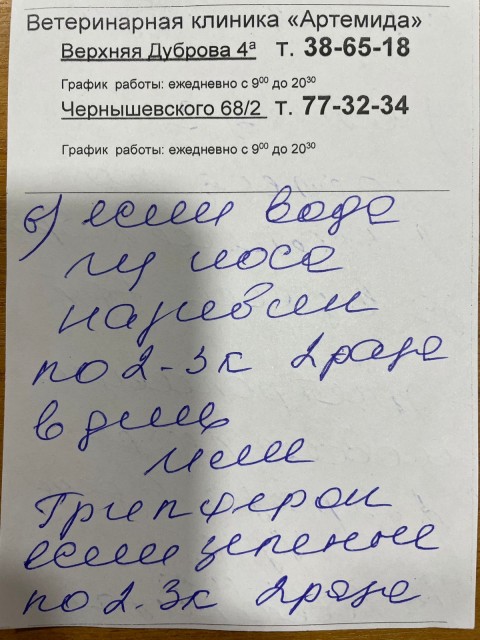 Ветеринарная клиника «Артемида»
Верхняя Дуброва 4а т. 38-65-18
График работы: ежедневно с 9⁰⁰ до 20³⁰
Чернышевского 68/2 т. 77-32-34
График работы: ежедневно с 9⁰⁰ до 20³⁰
6) если вода
из носа
називин
по 2-3к 2 раза
в день
или
Гриппферон
если зеленые
по 2-3к 2 раза